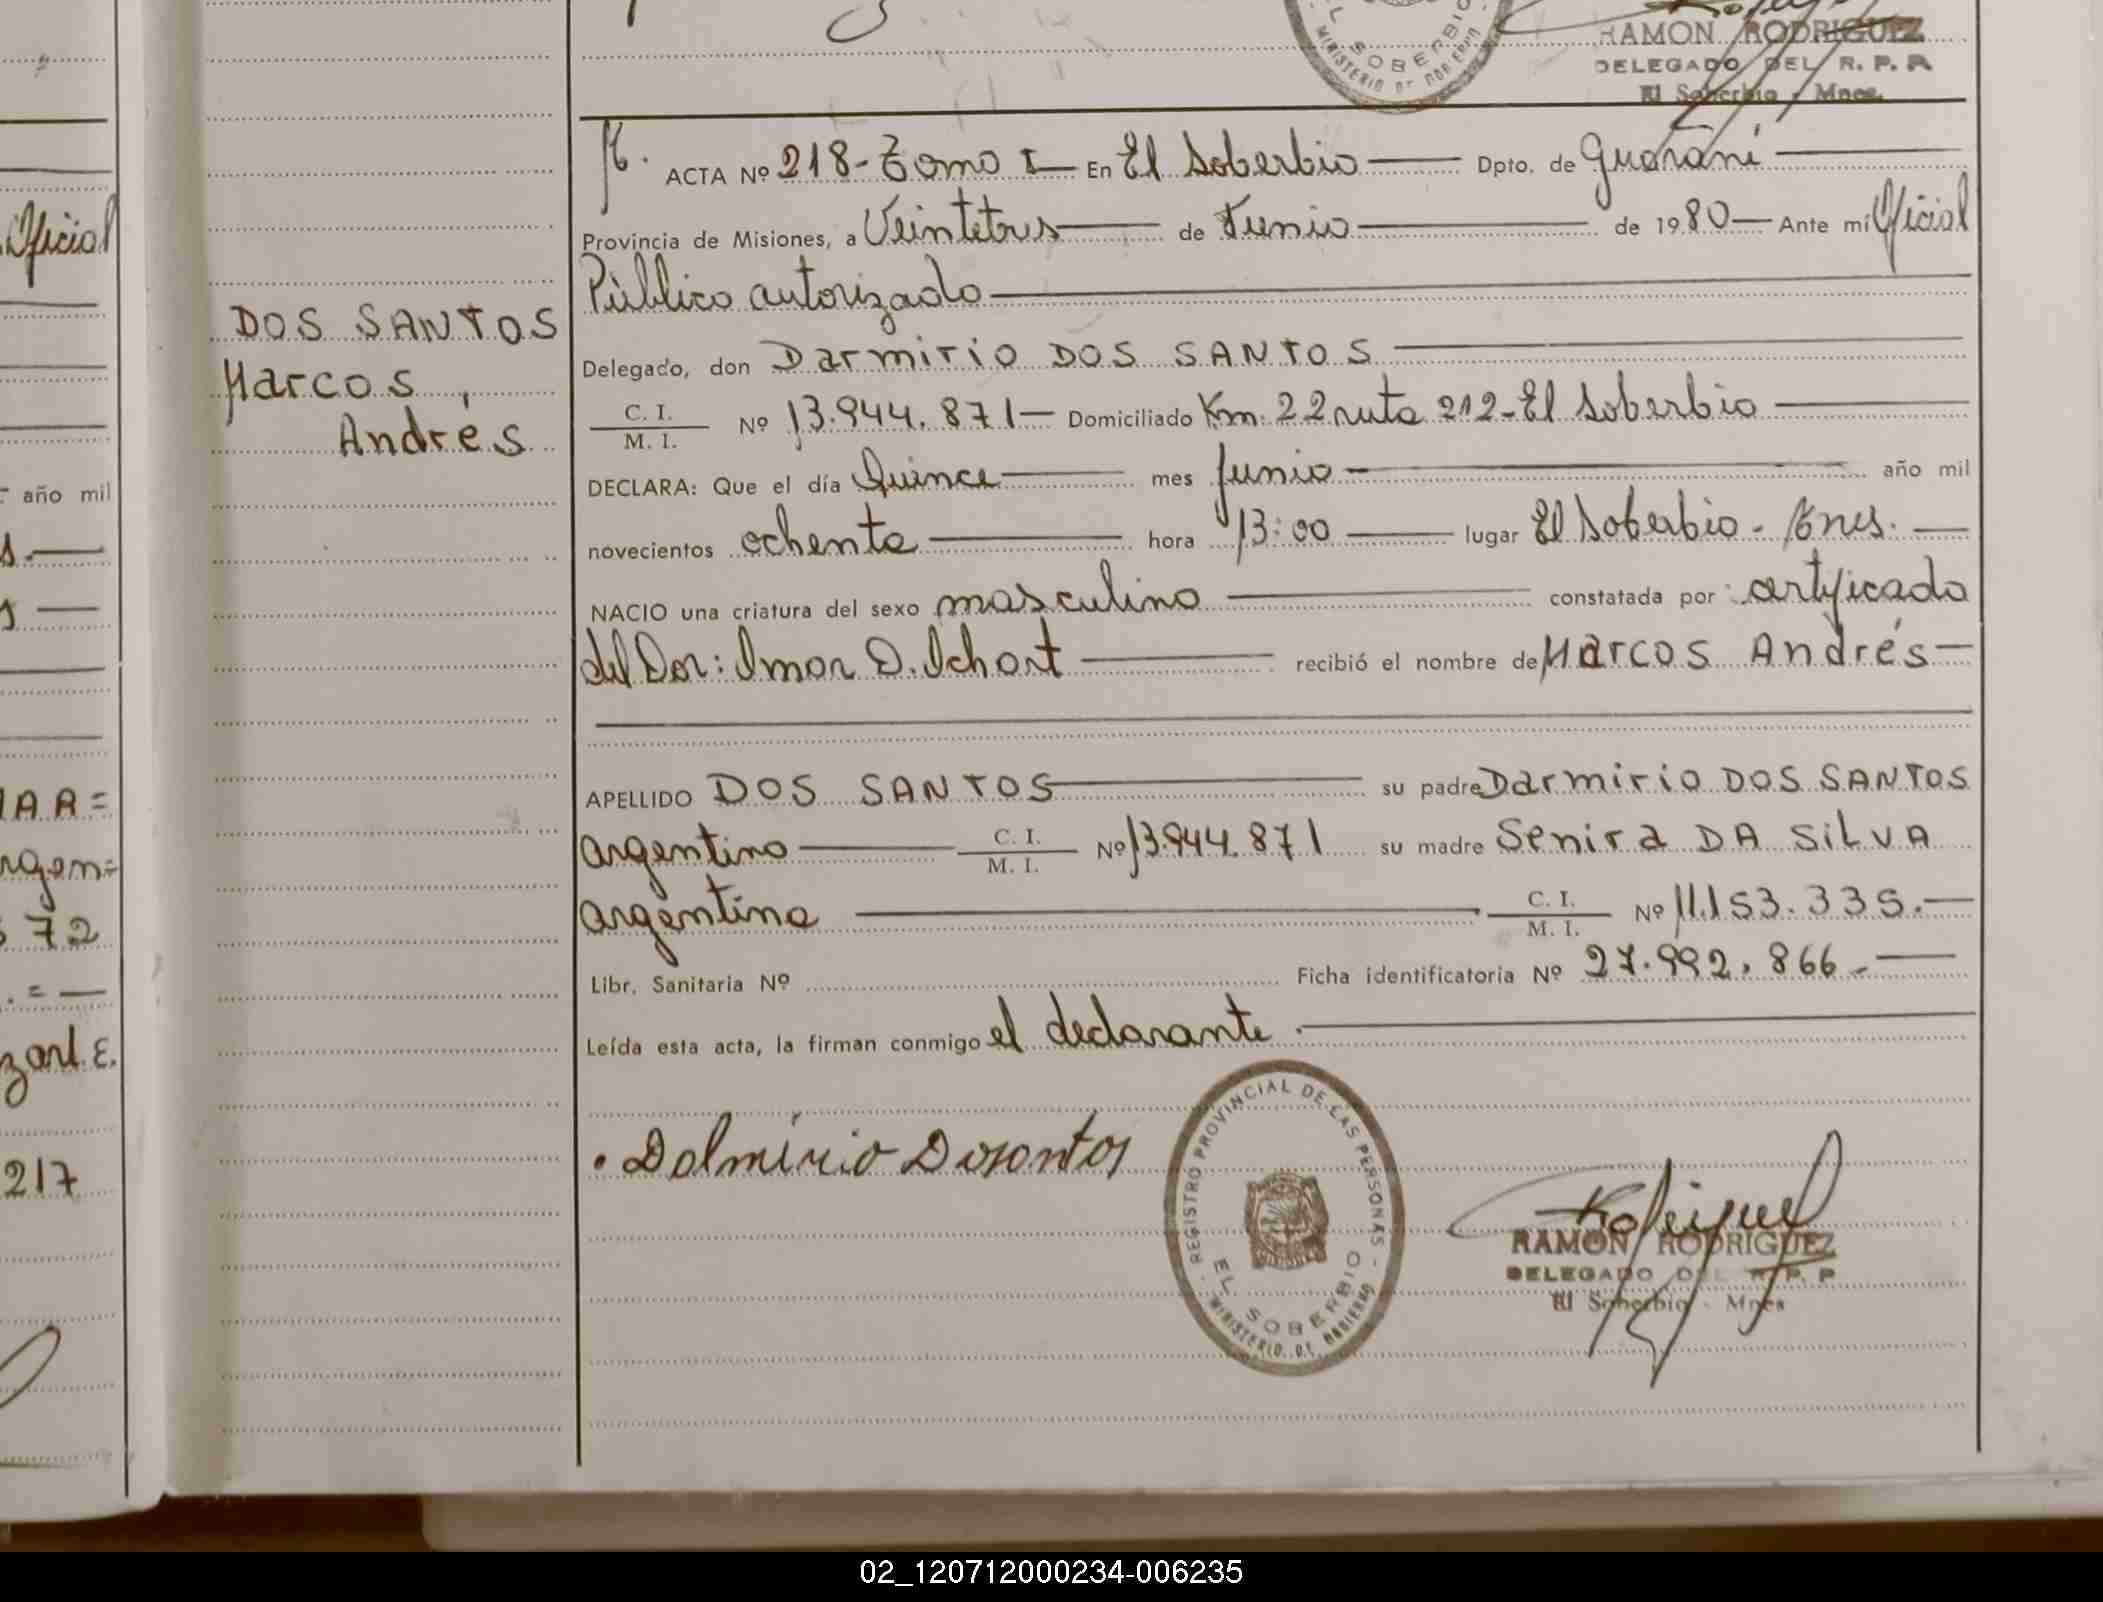 RAMON RODRIGUEZ
DELEGADO DEL R. P. P.
El Soberbio - Mnes.
EL SOBERBIO
MINISTERIO DE GOBIERNO
Oficial
año mil
IAR=
rgen=
72
zarl E.
217
DOS SANTOS
Marcos,
Andrés
ACTA Nº 218-Tomo I — En El Soberbio — Dpto. de Guaraní —
Provincia de Misiones, a Veintetres — de Junio — de 1980 — Ante mí Oficial
Público autorizado —
Delegado, don Darmirio DOS SANTOS —
C. I.
M. I. Nº 13.944.871 — Domiciliado Km. 22 ruta 212-El Soberbio —
DECLARA: Que el día Quince — mes Junio — año mil
novecientos ochenta — hora 13:00 — lugar El Soberbio - Mnes. —
NACIO una criatura del sexo masculino — constatada por certificado
del Dor: Omar D. Ichart — recibió el nombre de Marcos Andrés —
APELLIDO DOS SANTOS — su padre Darmirio DOS SANTOS
argentino — C. I.
M. I. Nº 13.944.871 su madre Senira DA SILVA
argentina — C. I.
M. I. Nº 11.153.335.—
Libr. Sanitaria Nº Ficha identificatoria Nº 27.992.866.—
Leída esta acta, la firman conmigo el declarante.—
Dalmirio Dosantos
REGISTRO PROVINCIAL DE LAS PERSONAS
EL SOBERBIO
MINISTERIO DE GOBIERNO
RAMON RODRIGUEZ
DELEGADO DEL R. P. P
El Soberbio - Mnes
02_120712000234-006235